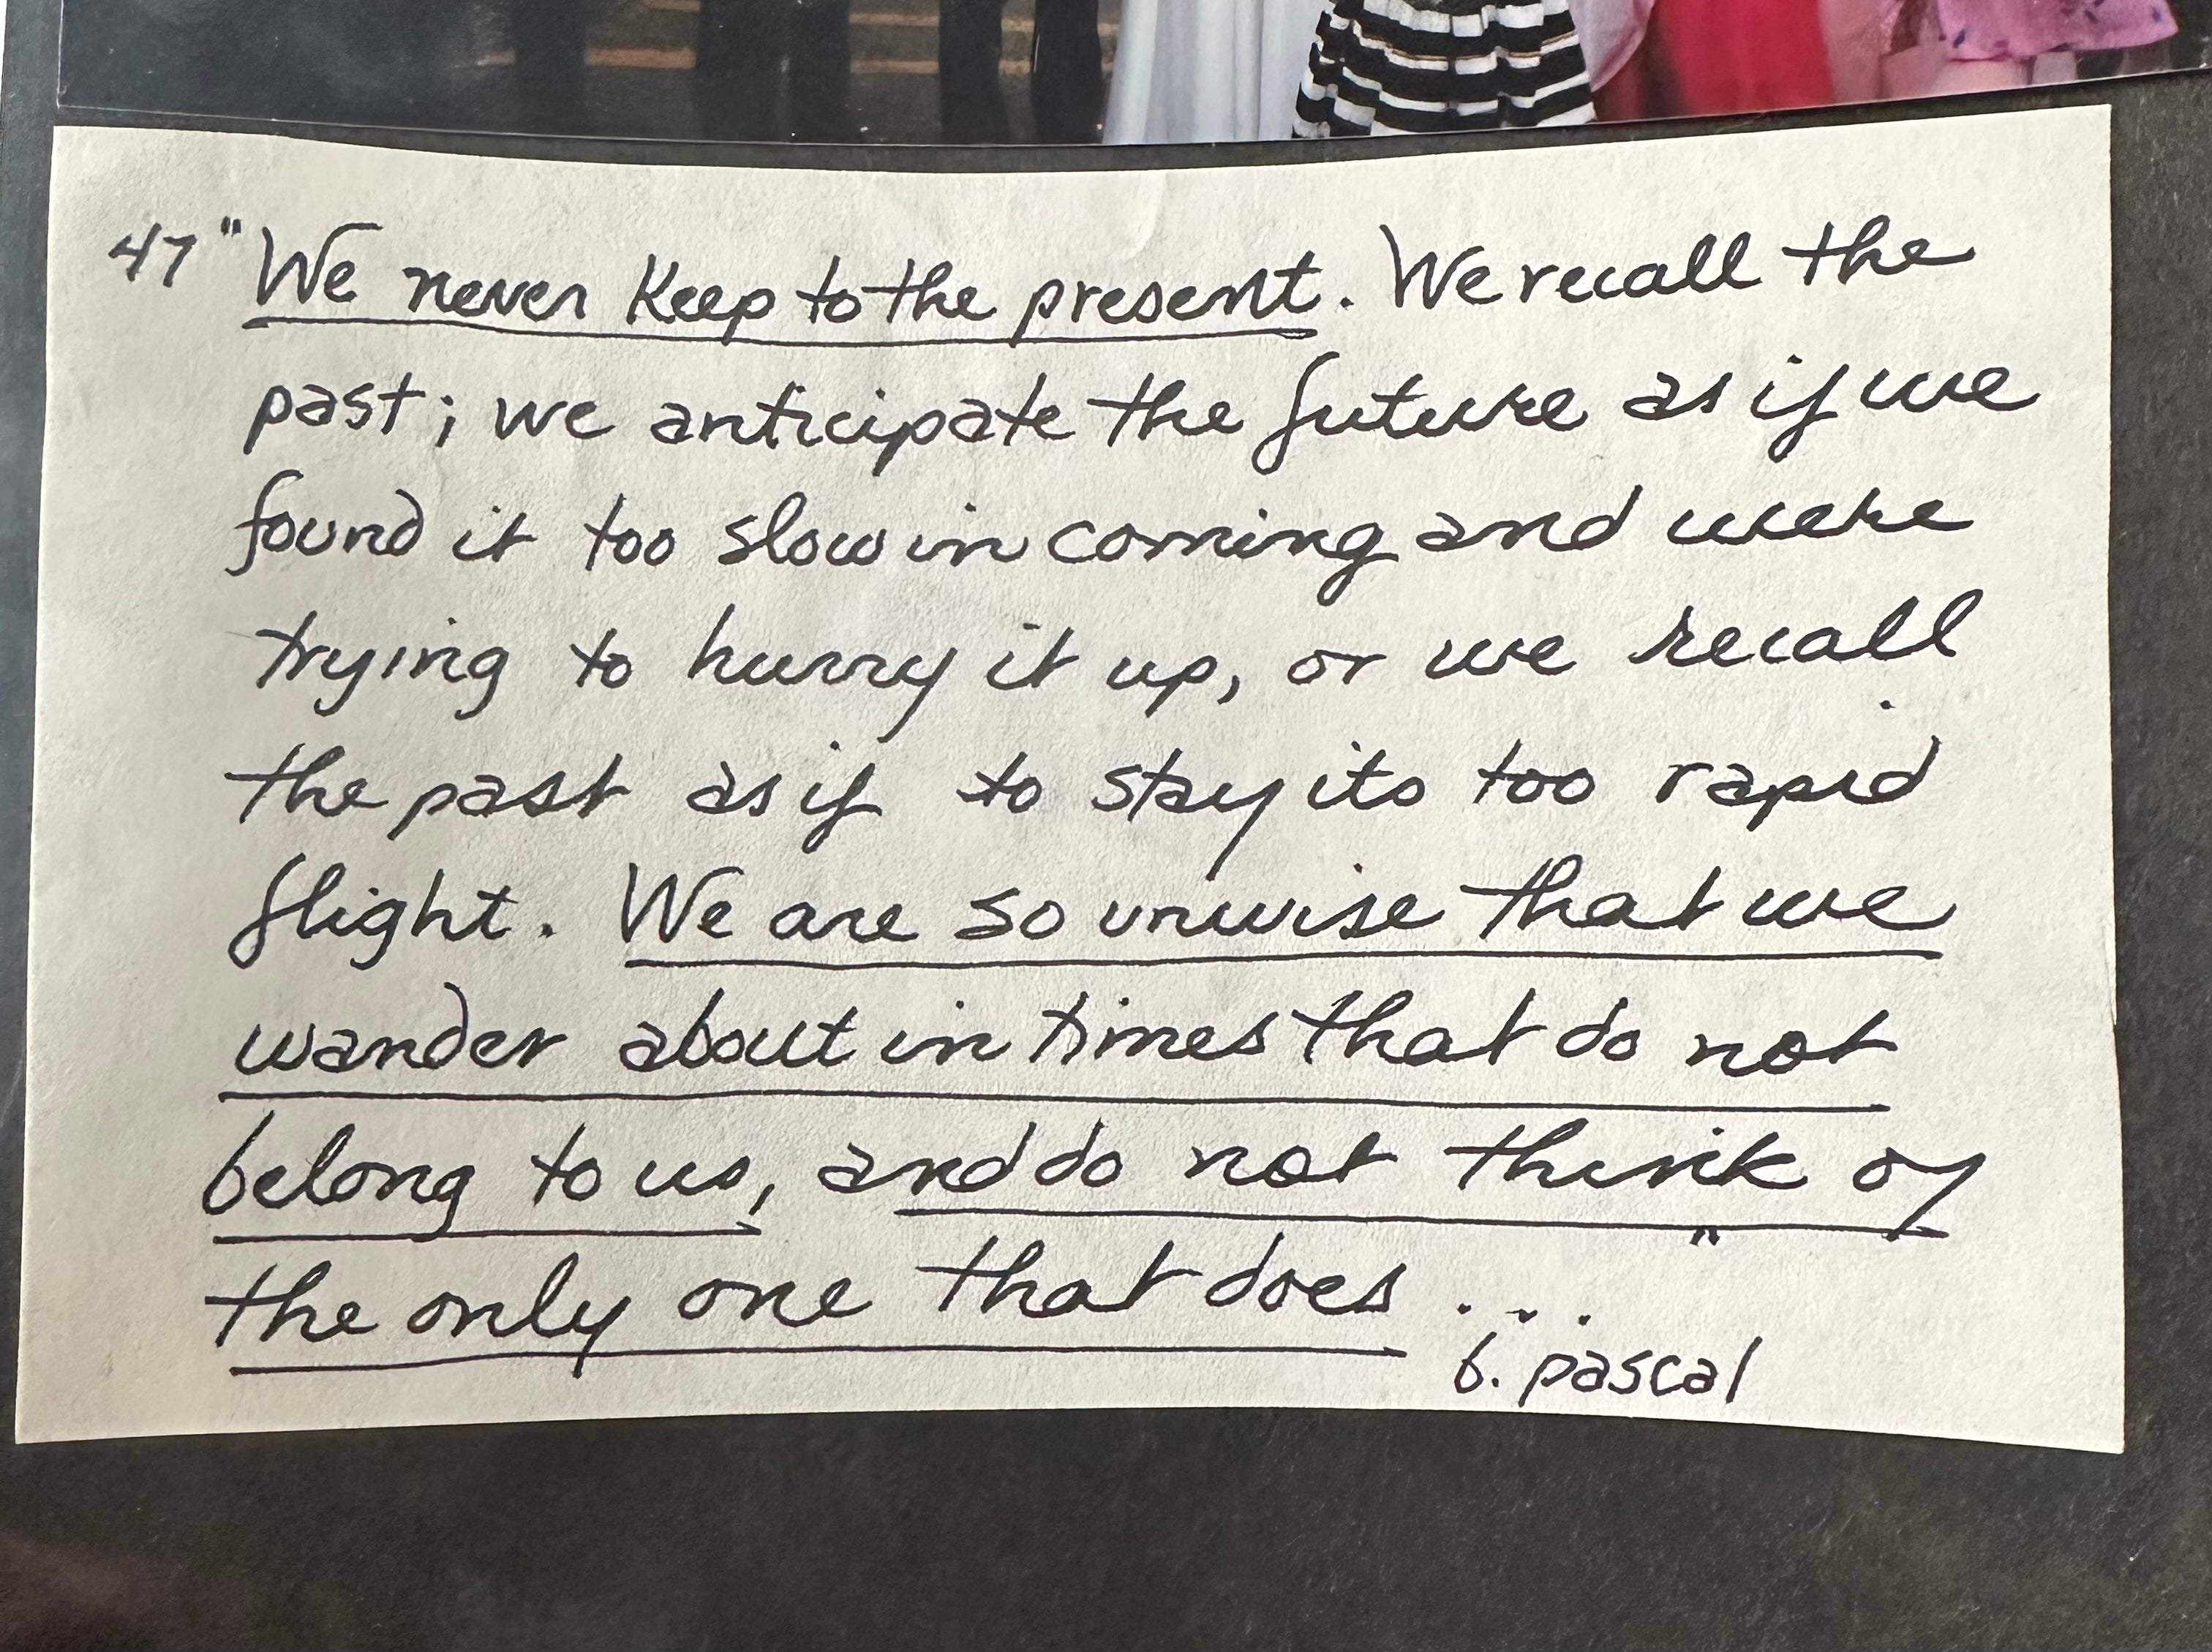 47 "We never keep to the present. We recall the
past; we anticipate the future as if we
found it too slow in coming and were
trying to hurry it up, or we recall
the past as if to stay its too rapid
flight. We are so unwise that we
wander about in times that do not
belong to us, and do not think of
the only one that does...."
b. pascal